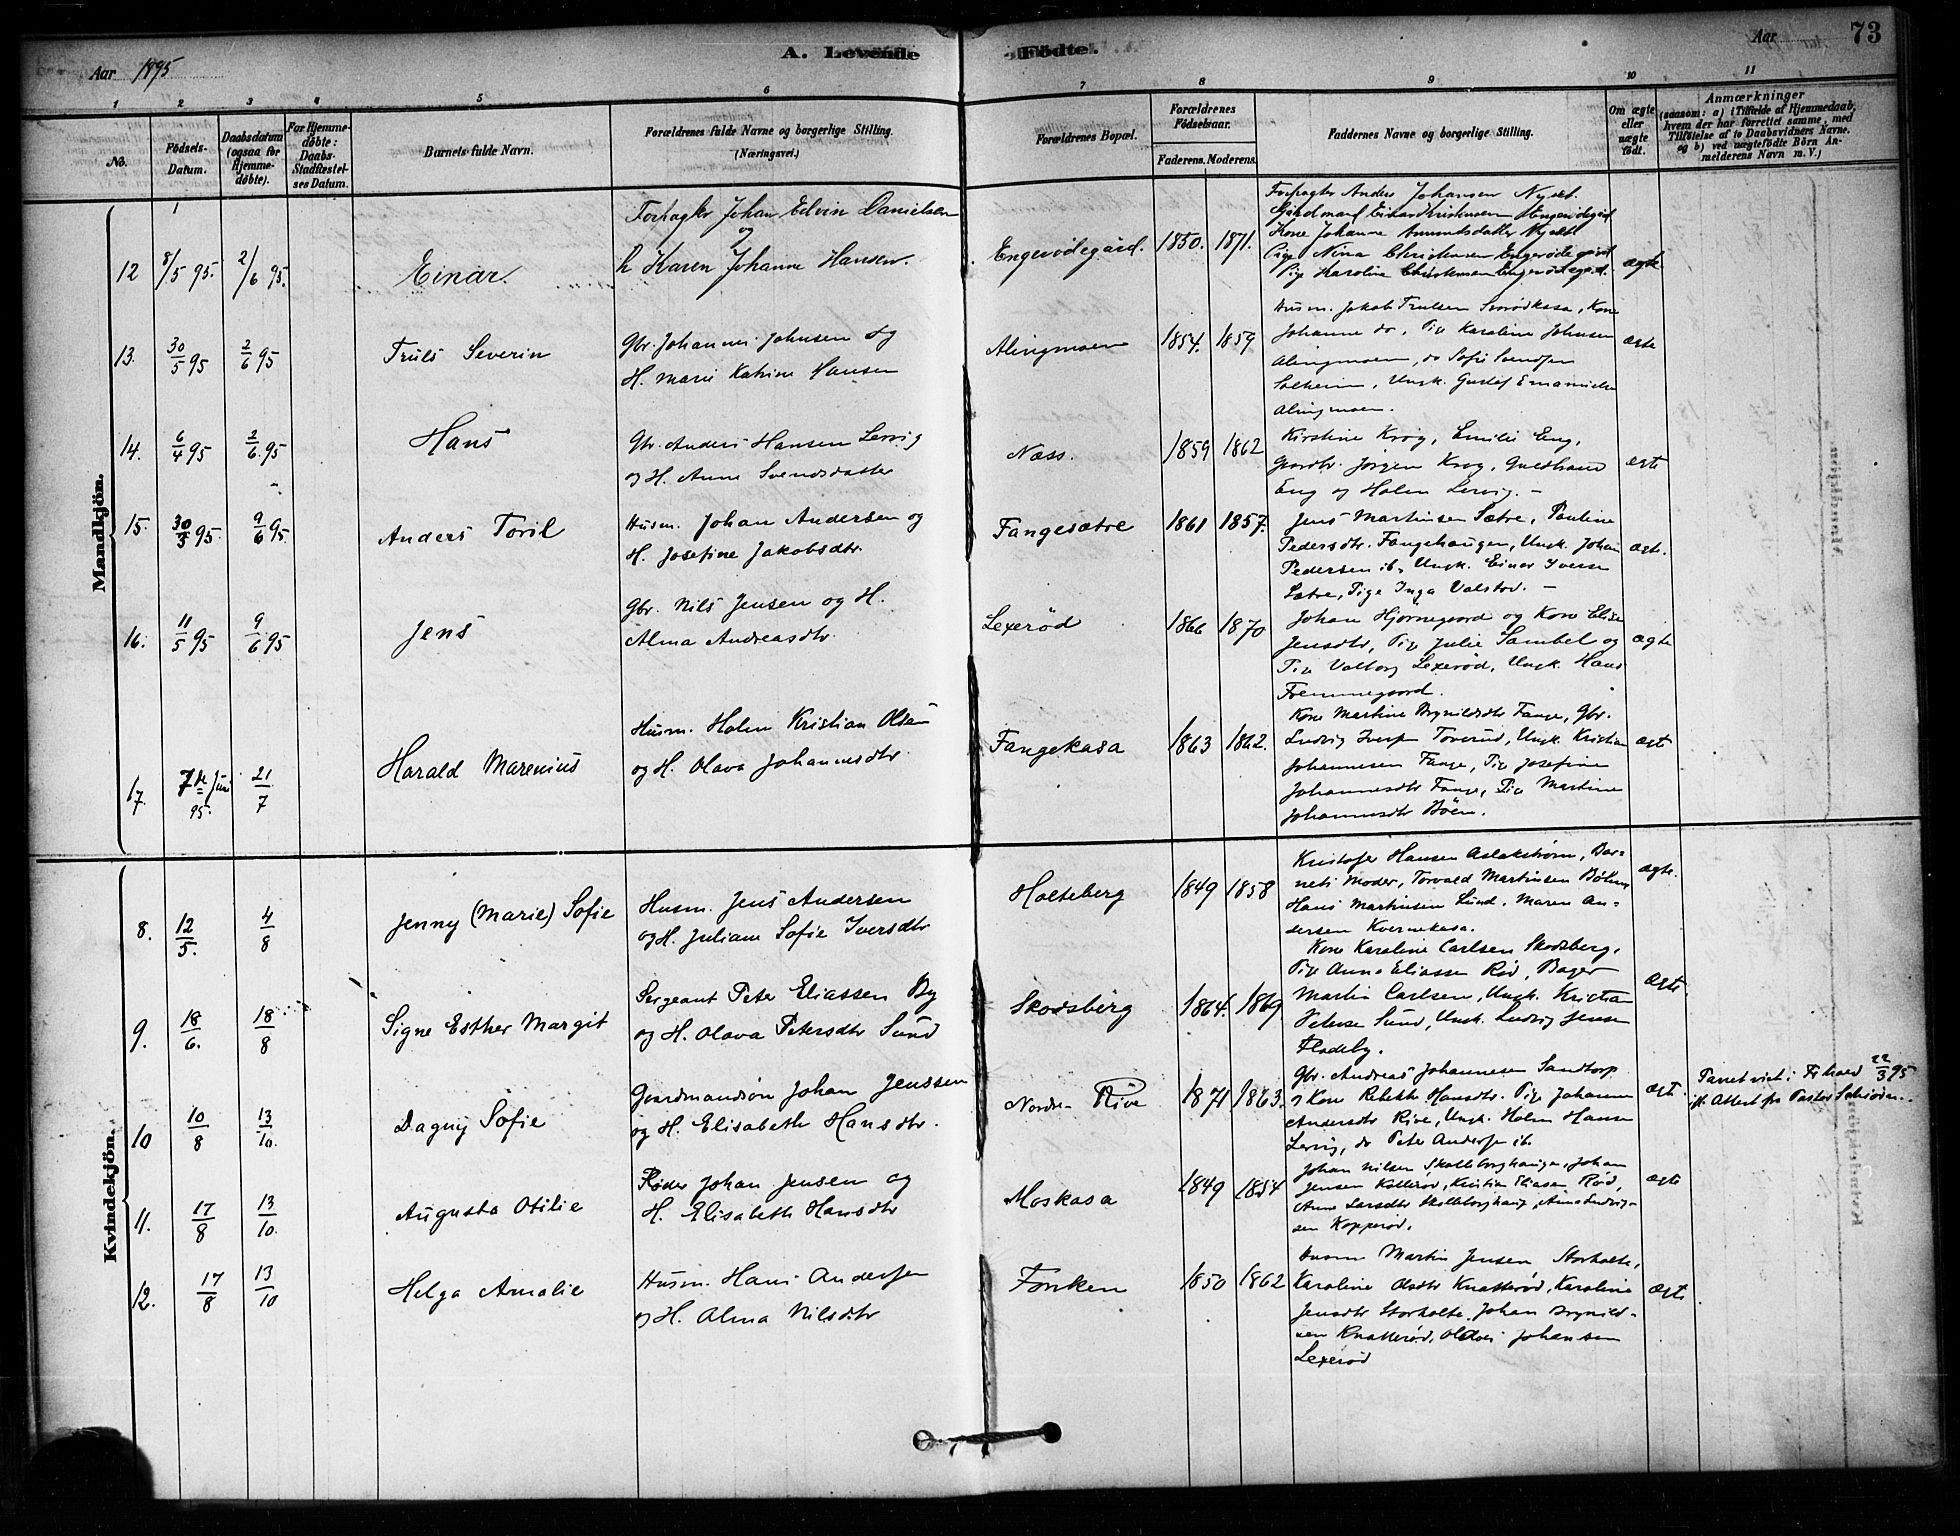 A. Levende Födte.
Aar 1895
Aar
73
1 2 3 4 5 6 7 8 9 10 11
No.
Födsels-Datum.
Daabsdatum (ogsaa for Hjemme-døbte).
For Hjemme-døbte: Daabs-Stadfæstel-ses Datum.
Barnets fulde Navn.
Forældrenes fulde Navne og borgerlige Stilling. (Næringsvei.)
Forældrenes Bopæl.
Forældrenes Födselsaar.
Faderens. Moderens.
Faddernes Navne og borgerlige Stilling.
Om ægte eller uægte födt.
Anmærkninger
(saasom: a) i Tilfælde af Hjemmedaab, hvem der har forrettet samme, med Tilföielse af to Daabsvidners Navne. og b) ved uægtefödte Börn An-melderens Navn m.V.)
Mandkjön.
12 8/5 95. 2/6 95. Einar.
Forpagter Johan Edvin Danielsen
og
h Karen Johanne Hansen.
Engerødegård. 1850. 1871.
Forpagter Anders Johansen Nyebt.
Gårdmand Einar Kristensen Engerødegård
Kone Johanne Amundsdatter
Pige Nina Christensen Engerødegård
Pige Karoline Christensen Engerødegård.
ægte
13. 30/5 95 2/6 95 Truls Severin
Gbr. Johannes Johnsen og
H. Marie Katrine Hansen
Alingmoen 1854. 1859
Husm. Jakob Trulsen, Kone
Johanne do, Pige Karoline Johnsen
Alingmoen, do Sofie Svendsen
Solheim, Ungk. Gustaf Emanuelsen
Alingmoen.
ægte
14. 6/4 95 2/6 95 Hans
Gbr. Anders Hansen Lervig
og H. Anne Svendsdatter
Næss. 1859 1862
Kirstine Krog, Emilie Eng,
Gaardbr. Jörgen Krog,
Eng og Holm Lervig. -
ægte
15. 30/3 95. 9/6 95. Anders Toril
Husm. Johan Andersen og
H. Josefine Jakobsdtr.
Fangesætre 1861 1857.
Jens Martinsen Sætre, Pauline
Pedersdtr. Fangehaugen, Ungk. Johan
Pedersen ib, Ungk. Einar Iversen
Sætre, Pige Inga Valstad. -
ægte.
16. 11/5 95 9/6 95 Jens
Gbr. Nils Jensen og H.
Alma Andreasdtr.
Lexerød 1866 1870
Johan Hjörnegaard og Kone Elise
Jensdtr, Pige Julie Sambel og
Pige Valborg Lexerød, Ungk. Hans
Fremmegaard.
ægte
17. 7de Juni 95. 21/7 Harald Marenius
Husm. Holm Kristian Olsen
og H. Olava Johannesdtr.
Fangekasa 1863 1862.
Kone Martine Brynildsdtr Fange, Gbr.
Ludvig Iversen Toverud, Ungk. Kristian
Johannesen Fange, Pige Josefine
Johannesdtr Fange, Pige Martine
Johannesdtr Böen.
ægte
Kvindekjön.
8. 12/5. 4/8 Jenny (Marie) Sofie
Husm. Jens Andersen
og H. Juliane Sofie Iversdtr
Holteberg 1849 1858
Kristofer Hansen Aslakstrøm, Bar-
nets Moder, Torvald Martinsen Böhm
Hans Martinsen Lund. Maren An-
dersen Kvernekasa.
ægte.
9. 18/6. 18/8 Signe Esther Margit
Sergeant Peter Eliassen By
og H. Olava Petersdtr Sund
Skodsberg 1864. 1869
Kone Karoline Carlsen Skodsberg,
Pige Anna Eliassen Rød, Bager
Martin Carlsen, Ungk. Kristian
Petersen Sund, Ungk. Ludvig Jensen
Fladeby.
ægte
10 10/8 13/10. Dagny Sofie
Gaardmandsön Johan Jenssen
og H. Elisabeth Hansdtr.
Nordre Rive 1871 1863.
Gbr. Andreas Johannesen Sandtorp
og Kone Rebekka Hansdtr. Pige Johanne
Andersdtr Rive, Ungk. Holm Hansen
Lervig, do Peter Andersen ib.
ægte.
22/3 95
11. 17/8 13/10. Augusta Otilie
Fløder Johan Jensen og
H. Elisabeth Hansdtr
Moskasa 1849 1854
Johan Nilsen Skolleborghaugen, Johan
Jensen Kollerød, Kristian Eliasen Rød,
Anne Larsdtr Skolleborghaug, Anne Ludvig-
sen Kopperød.
ægte
12. 17/8 13/10 Helga Amalie
Husm. Hans Andersen
og H. Alma Nilsdtr
Fonken 1850 1862
Husm Martin Jensen Storholte,
Karoline Olsdtr Knatterød, Karoline
Jensdtr Storholte, Johan Brynild-
sen Knatterød, Johansen
Lexerød
ægte